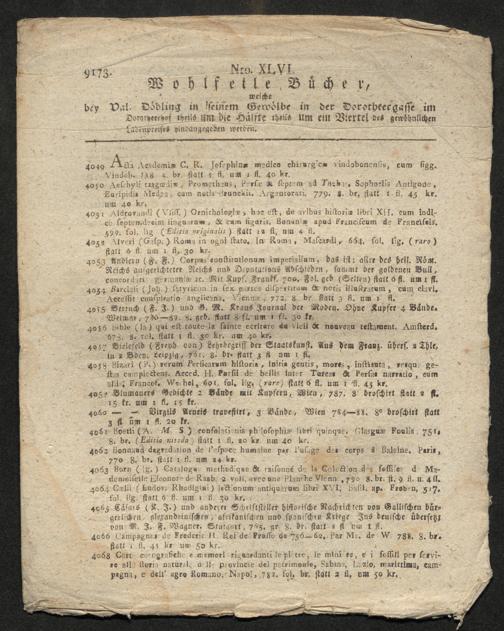 9173.
Nro. XLVI.
Wohlfeile Bücher,
welche
bey Val. Döbling in seinem Gewölbe in der Dorotheergasse im
Dorotheerhof theils um die Hälfte theils um ein Viertel des gewöhnlichen
Ladenpreises hindangegeben werden.
4049 Acta Academiæ C. R. Josephinæ medico chirurgicæ vindobonensis, cum figg.
Vindob. 788 4. br. statt 5 fl. um 1 fl. 40 kr.
4050 Aeschyli tragœdiæ, Prometheus, Persæ & septem ad Thebas, Sophoclis Antigone,
Euripidis Medea, cum notis Brunckii. Argentorati, 779. 8. br. statt 1 fl. 45 kr.
um 40 kr.
4051 Aldrovandi (Uliss.) Ornithologiæ, hoc est, de avibus historiæ libri XII. cum indi-
ce septemdecim linguarum, & cum figuris. Bononiæ apud Franciscum de Francifcis,
599. fol. lig (Editio originalis) statt 12 fl. um 4 fl.
4052 Alveri (Gasp.) Roma in ogni stato. In Roma, Mascardi, 664. fol. lig. (raro)
statt 6 fl. um 1 fl. 30 kr.
4053 Andlern (F. F.) Corpus constitutionum imperialium, das ist: aller des heil. Röm.
Reichs ausgerichteter Reichs und Deputations Abschieden, sammt der goldenen Bull,
concordiæ germaniæ ꝛc. Mit Kupf. Frankf. 700. Fol. geb (Selten) statt 6 fl. um 1 fl.
4054 Barclaii (Joh.) Satyricon in sex partes dispertitum & notis illustratum, cum clavi.
Accessit conspiratio anglicana. Viennæ, 772. 8. br. statt 3 fl. um 1 fl.
4055 Bertuch (F. J.) und G. M. Kraus Journal der Moden. Ohne Kupfer 4 Bände.
Weimar, 786—89. 8. geb. statt 8 fl. um 1 fl. 30 kr.
4056 Bible (la) qui est toute la sainte ecriture du vieil & nouveau testament. Amsterd.
678. 8. rel. statt 1 fl. 30 kr. um 40 kr.
4057 Bielefeld (Freyh. von) Lehrbegriff der Staatskunst. Aus dem Franz. übers. 2 Thle.
in 2 Bden. Leipzig, 761. 8. br. statt 3 fl um 1 fl.
4058 Bizari (P.) rerum Persicarum historia, initia gentis, mores, instituta, resque ge-
stas complectens. Acced. H. Porsii de bellis inter Turcas & Persas narratio, cum
aliis, Francof. Wechel, 601. fol. lig. (rare) statt 6 fl. um 1 fl. 45 kr.
4059 Blumauers Gedichte 2 Bände mit Kupfern, Wien, 787. 8. broschirt statt 2 fl.
15 kr. um 1 fl. 15 kr.
4060 — — Virgils Aeneis travestirt, 3 Bände, Wien 784—88. 8° broschirt statt
3 fl um 1 fl. 20 kr.
4061 Boetii (A. M. S) consolationis philosophiæ libri quinque. Glasguæ Foulis. 751,
8. br. (Editio nitida) statt 1 fl. 20 kr. um 40 kr.
4062 Bonnaud degradation de l'espece humaine par l'usage des corps à baleine. Paris,
770. 8. br. statt 1 fl. um 24 kr.
4063 Born (Ig.) Catalogue methodique & raisonné de la Colection des fossiles de Ma-
demoiselle Eleonore de Raab, 2 voll. avec une Planche Vienn, 790 8. br. ft. 9 fl. u. 4 fl.
4064 Cælii (Ludov. Rhodigini) lectionum antiquarum libri XVI, Basil. ap. Froben, 517.
fol. lig. statt 6 fl. um 1 fl. 30 kr.
4065 Cäsars (K. J.) und anderer Schriftsteller historische Nachrichten von Gallischen bür-
gerlichen, alexandrinischen, afrikanischen und spanischen Kriege Ins deutsche übersetzt
von M. J. F. Wagner. Stuttgart, 765. gr. 8. br. statt 2 fl um 1 fl.
4066 Campagnes de Frederic II. Roi de Prusse de 756—62. Par Mr. de W 788. 8. br.
statt 1 fl. 45 kr um 50 kr.
4068 orografiche e memori riguardanti le pietre, le miniere, e i fossili per servi-
re alla storia natural. delle provincie del patrimonio, Sabina, Lazio, marittima, cam-
pagna, e dell' agro Romano. Napol, 782. fol. br. statt 2 fl. um 50 kr.